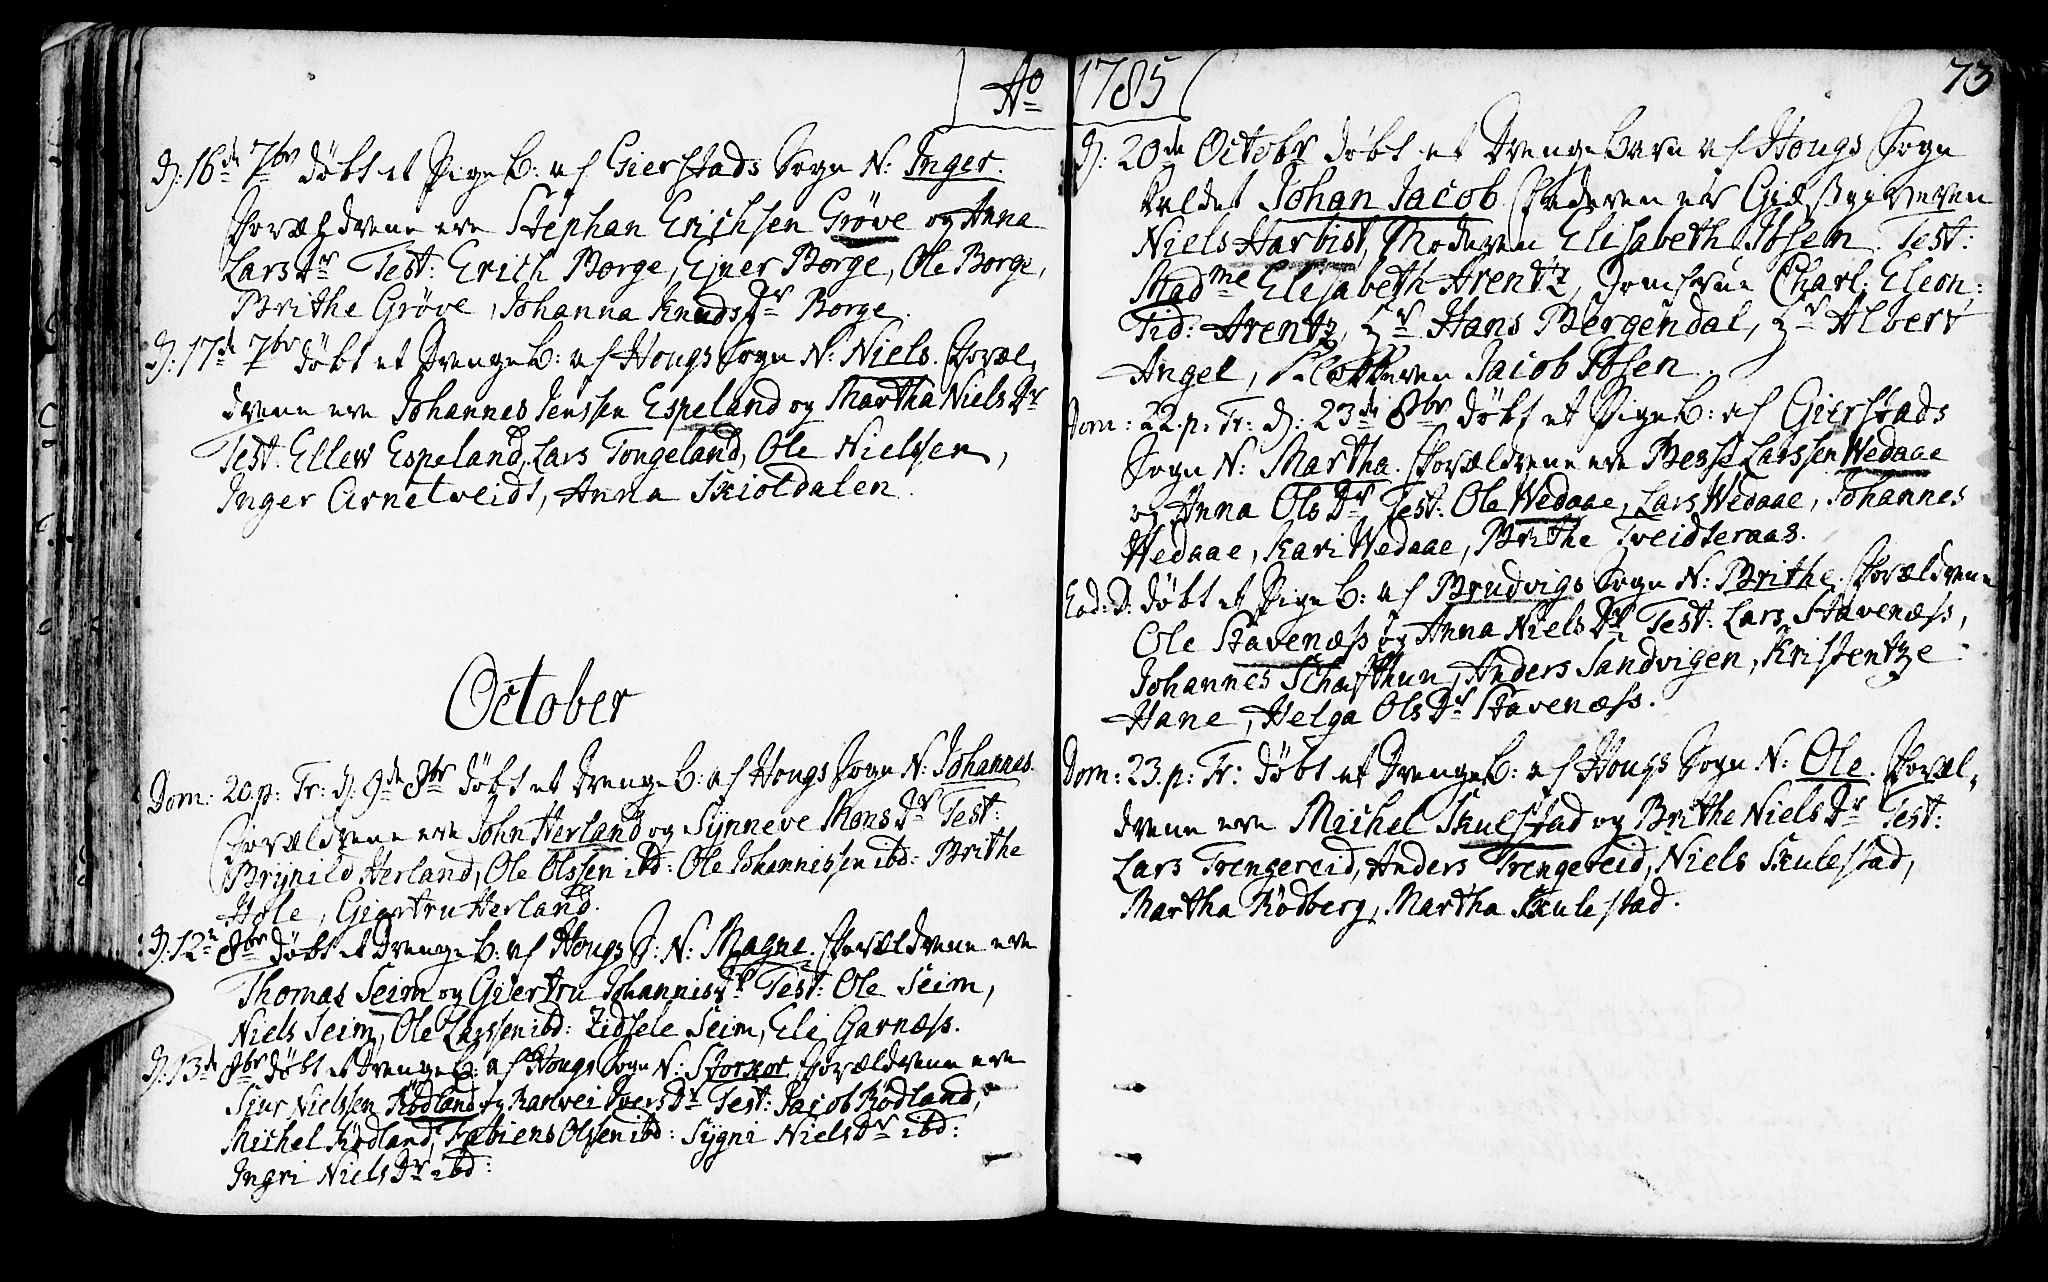 Ao
D: 16de 7br døbt et PigeB: af Gierstads Sogn N: Inger.
Forældrene ere Stephan Erichsen Grøve og Anna
LarsDr Test: Erich Borge, Ejner Borge, Ole Borge,
Brithe Grøve, Johanna KnudsDr Borge.
D: 17de 7br døbt et DrengeB: af Hougs Sogn N: Niels. Foræl,
drene ere Johannes Jenssen Espeland og Martha NielsDr
Test: Ellew Espeland, Lars Tongeland, Ole Nielssen,
Inger Arnetveidt, Anna Skioldalen.
October
Dom: 20. p: Tr: D: 9de 8br døbt et DrengeB: af Hougs Sogn N: Johannes.
Forældrene ere John Herland og Synneve MonsDr Test:
Brynild Herland, Ole Olssen ibd: Ole Johannissen ibd: Brithe
Hole, Giertru Herland.
D: 12e 8br døbt et DrengeB: af Hougs S: N: Magne. Forældrene ere
Thomas Seim og Giertru JohannisDr Test: Ole Seim,
Niels Seim, Ole Larssen ibd: Zidsele Seim, Eli Garnæss.
D: 13de 8br døbt et DrengeB: af Hougs Sogn N: Storkor Forældrene ere
Siur Nielssen Rødland og Ranvei IversDr Test: Jacob Rødland,
Michel Rødland, Fabiens Olssen ibd: Sygni NielsDr ibd:
Ingri NielsDr ibd:
1785
73
D: 20de Octobr døbt et DrengeBarn af Hougs Sogn
kaldet Johan Jacob. Faderen er Giæstgiveren
Niels Harbist, Moderen Elisabeth Ibsen. Test:
Madme Elisabeth Arentz, Jomfrue Charl: Eleon:
Tid: Arentz, Hr Hans Bergendal, Hr Albert
Angel, Klokkeren Jacob Ibsen.
Dom: 22. p: Tr: D: 23de 8br døbt et PigeB: af Gierstads
Sogn N: Martha. Forældrene ere Besse Larssen Wedaae
og Anna OlsDr Test: Ole Wedaae, Lars Wedaae, Johannes
Wedaae, Kari Wedaae, Brithe Tveidteraas.
Eod: D: døbt et PigeB: af Brudvigs Sogn N: Brithe. Forældrene
Ole Stavenæss og Anna NielsDr Test: Lars Stavenæss,
Johannes Schafthun, Anders Sandvigen, Kristentze
Hane, Helga OlsDr Stavenæss.
Dom: 23. p: Tr: døbt et DrengeB: af Hougs Sogn N: Ole. Foræl,
drene ere Michel Skulstad og Brithe NielsDr Test:
Lars Trengereid, Anders Trengereid, Niels Skulestad,
Martha Rødberg, Martha Skulestad.